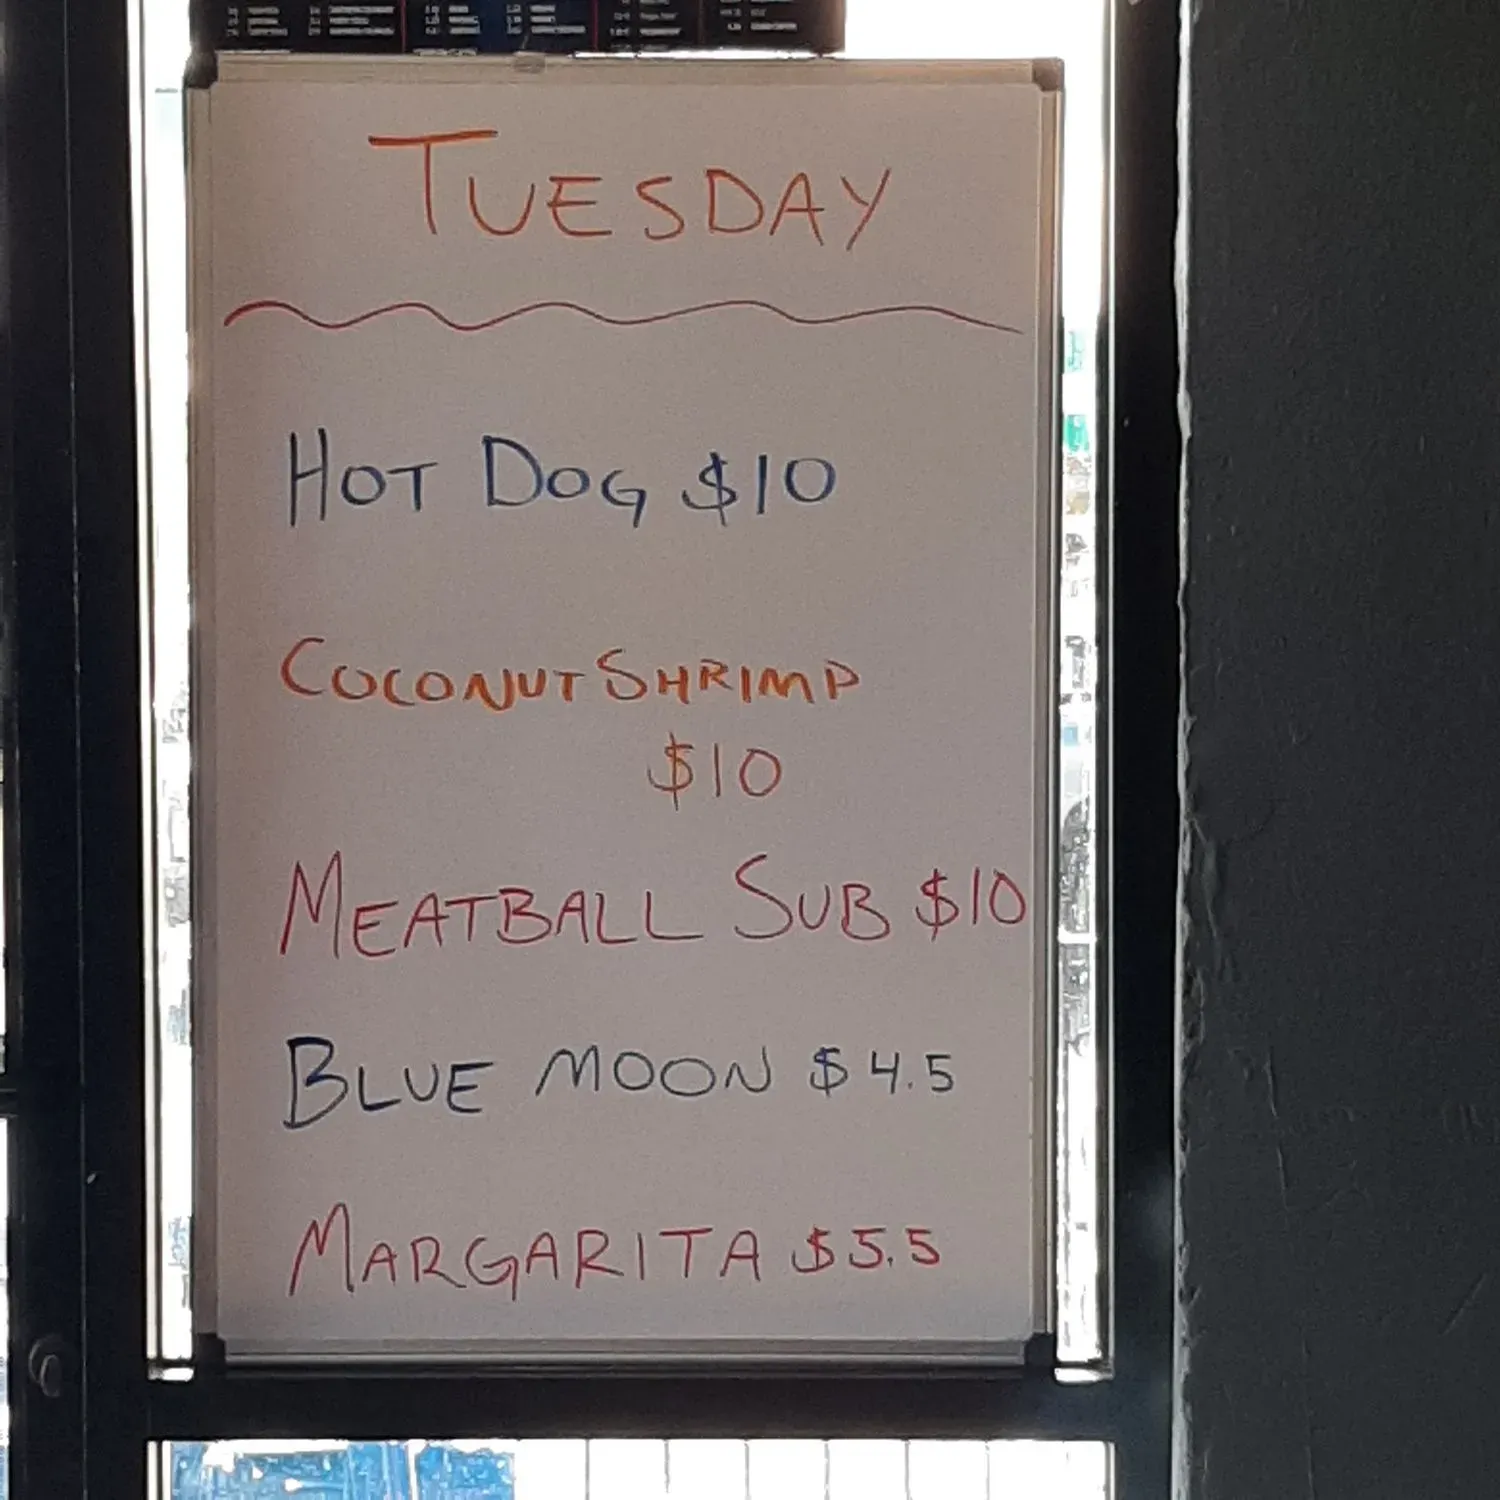 TUESDAY
HOT DOG $10
COCONUT SHRIMP
$10
MEATBALL SUB $10
BLUE MOON $4.5
MARGARITA $5.5